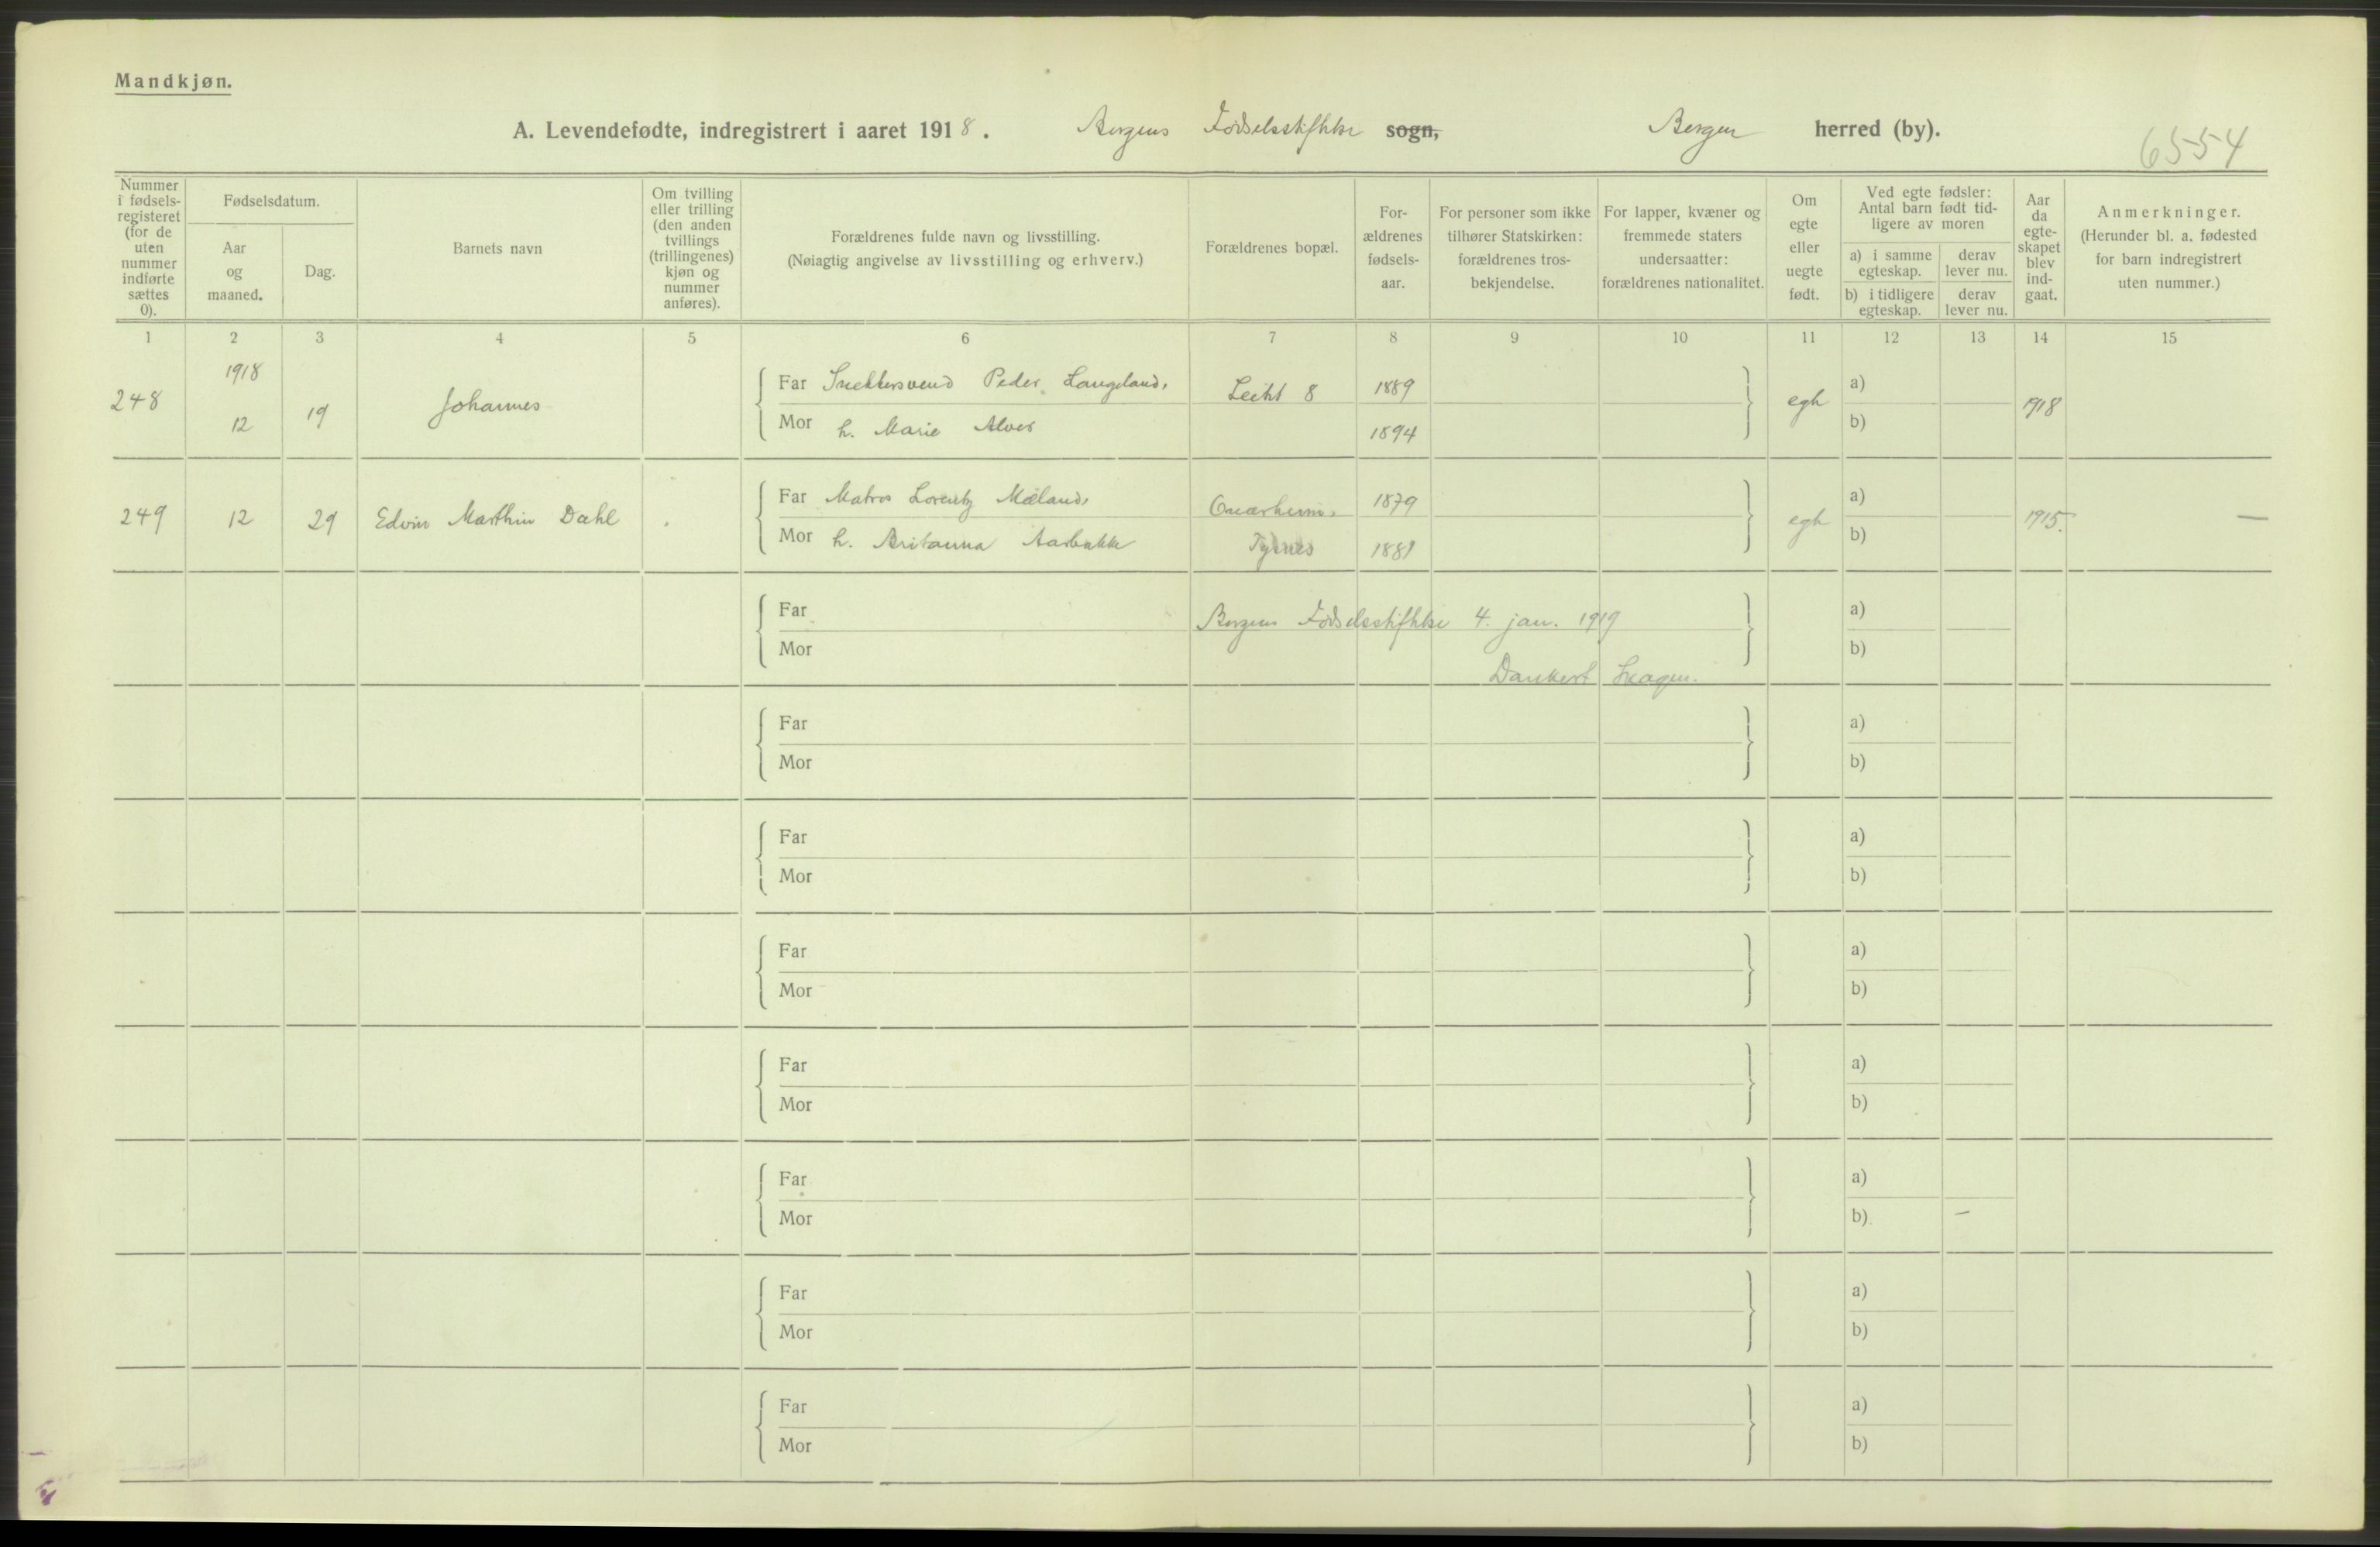 Mandkjøn.
A. Levendefødte, indregistrert i aaret 1918. Bergens Fødselsstiftelse sogn, Bergen herred (by).
6554
Nummer i fødsels-registeret (for de uten nummer indførte sættes 0).
Fødselsdatum.
Aar og maaned.
Dag.
Barnets navn
Om tvilling eller trilling (den anden tvillings (trillingenes) kjøn og nummer anføres).
Forældrenes fulde navn og livsstilling.
(Nøiagtig angivelse av livsstilling og erhverv.)
Forældrenes bopæl.
For-ældrenes fødsels-aar.
For personer som ikke tilhører Statskirken: forældrenes tros-bekjendelse.
For lapper, kvæner og fremmede staters undersaatter: forældrenes nationalitet.
Om egte eller uegte født.
Ved egte fødsler: Antal barn født tid-ligere av moren
a) i samme egteskap.
derav lever nu.
b) i tidligere egteskap.
derav lever nu.
Aar da egte-skapet blev ind-gaat.
Anmerkninger.
(Herunder bl. a. fødested for barn indregistrert uten nummer.)
1 2 3 4 5 6 7 8 9 10 11 12 13 14 15
1918
248 12 19 Johannes
Far Snekkersvend Peder Langeland, 1889
Mor h. Marie Alver 1894
8 a) b) 1918
249 12 29 Edvin Marthin Dahl
Far Matros Lorentz Mæland, 1879
Mor h. Britanna Aarbakke Tysnes 1881
a) b) 1915. —
Far
Bergens Fødselsstiftelse 4. jan. 1919
Mor
Dankert Skagen.
a)
b)
Far a)
Mor b)
Far a)
Mor b)
Far a)
Mor b)
Far a)
Mor b)
Far a)
Mor b)
Far a)
Mor b)
Far a)
Mor b)